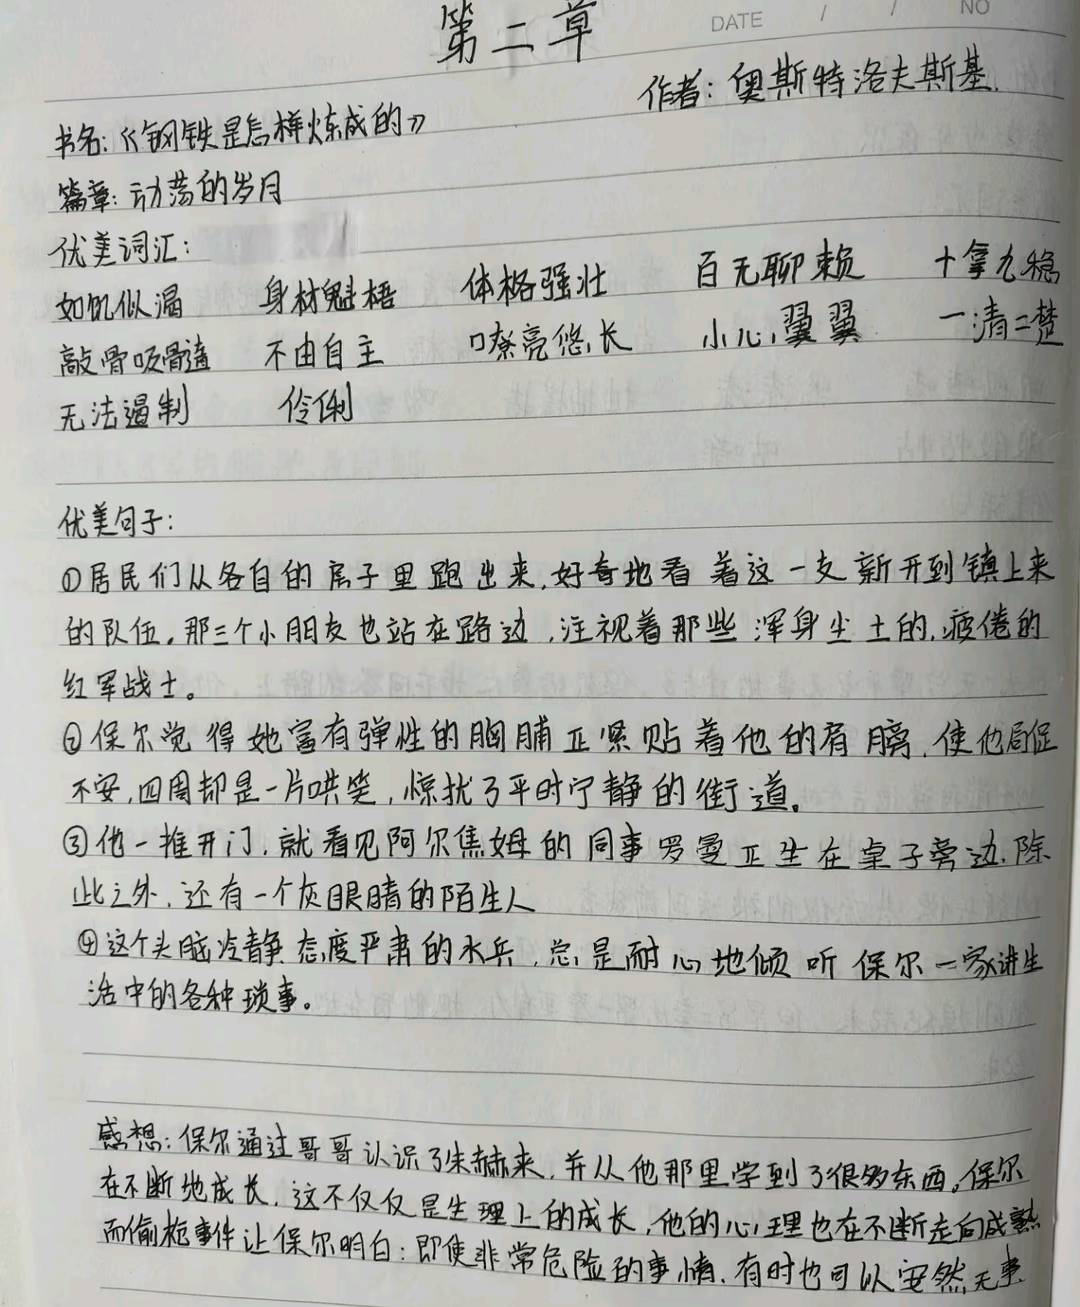 第二章
DATE / / NO
作者：奥斯特洛夫斯基.
书名：《钢铁是怎样炼成的》
篇章：动荡的岁月
优美词汇：
如饥似渴 身材魁梧 体格强壮 百无聊赖 十拿九稳
敲骨吸髓 不由自主 嘹亮悠长 小心翼翼 一清二楚
无法遏制 伶俐
优美句子：
①居民们从各自的房子里跑出来,好奇地看着这一支新开到镇上来
的队伍。那三个小朋友也站在路边,注视着那些浑身尘土的,疲倦的
红军战士。
②保尔觉得她富有弹性的胸脯正紧贴着他的肩膀,使他局促
不安,四周却是一片哄笑,惊扰了平时宁静的街道。
③他一推开门,就看见阿尔焦姆的同事罗曼正坐在桌子旁边,除
此之外,还有一个灰眼睛的陌生人
④这个头脑冷静态度严肃的水兵,总是耐心地倾听保尔一家讲生
活中的各种琐事。
感想：保尔通过哥哥认识了朱赫来,并从他那里学到了很多东西。保尔
在不断地成长,这不仅仅是生理上的成长,他的心理也在不断走向成熟
而偷枪事件让保尔明白：即使非常危险的事情,有时也可以安然无事